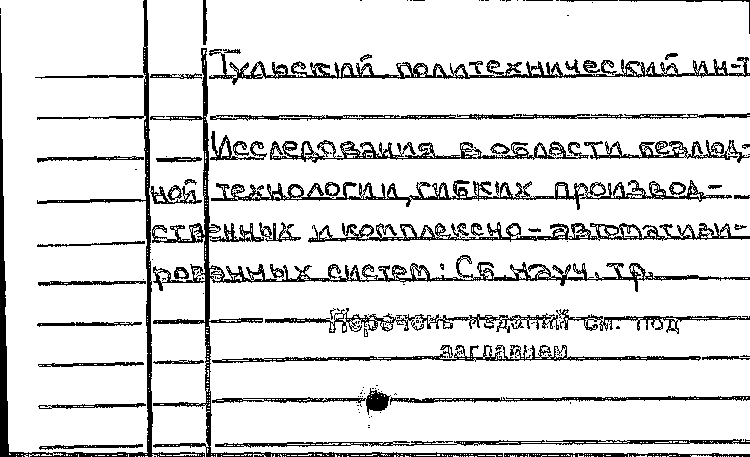 Тульский политехнический ин-т
Исследования в области безлюд-
ной технологии, гибких производ-
ственных и комплексно-автоматизи-
рованных систем: Сб. науч. тр.
Перечень изданий см. под
заглавием